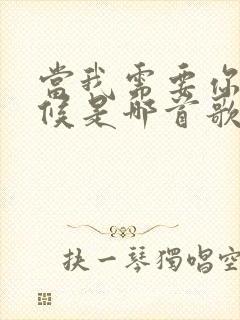 當我需要你
候是哪首歌
抉一琴獨唱空